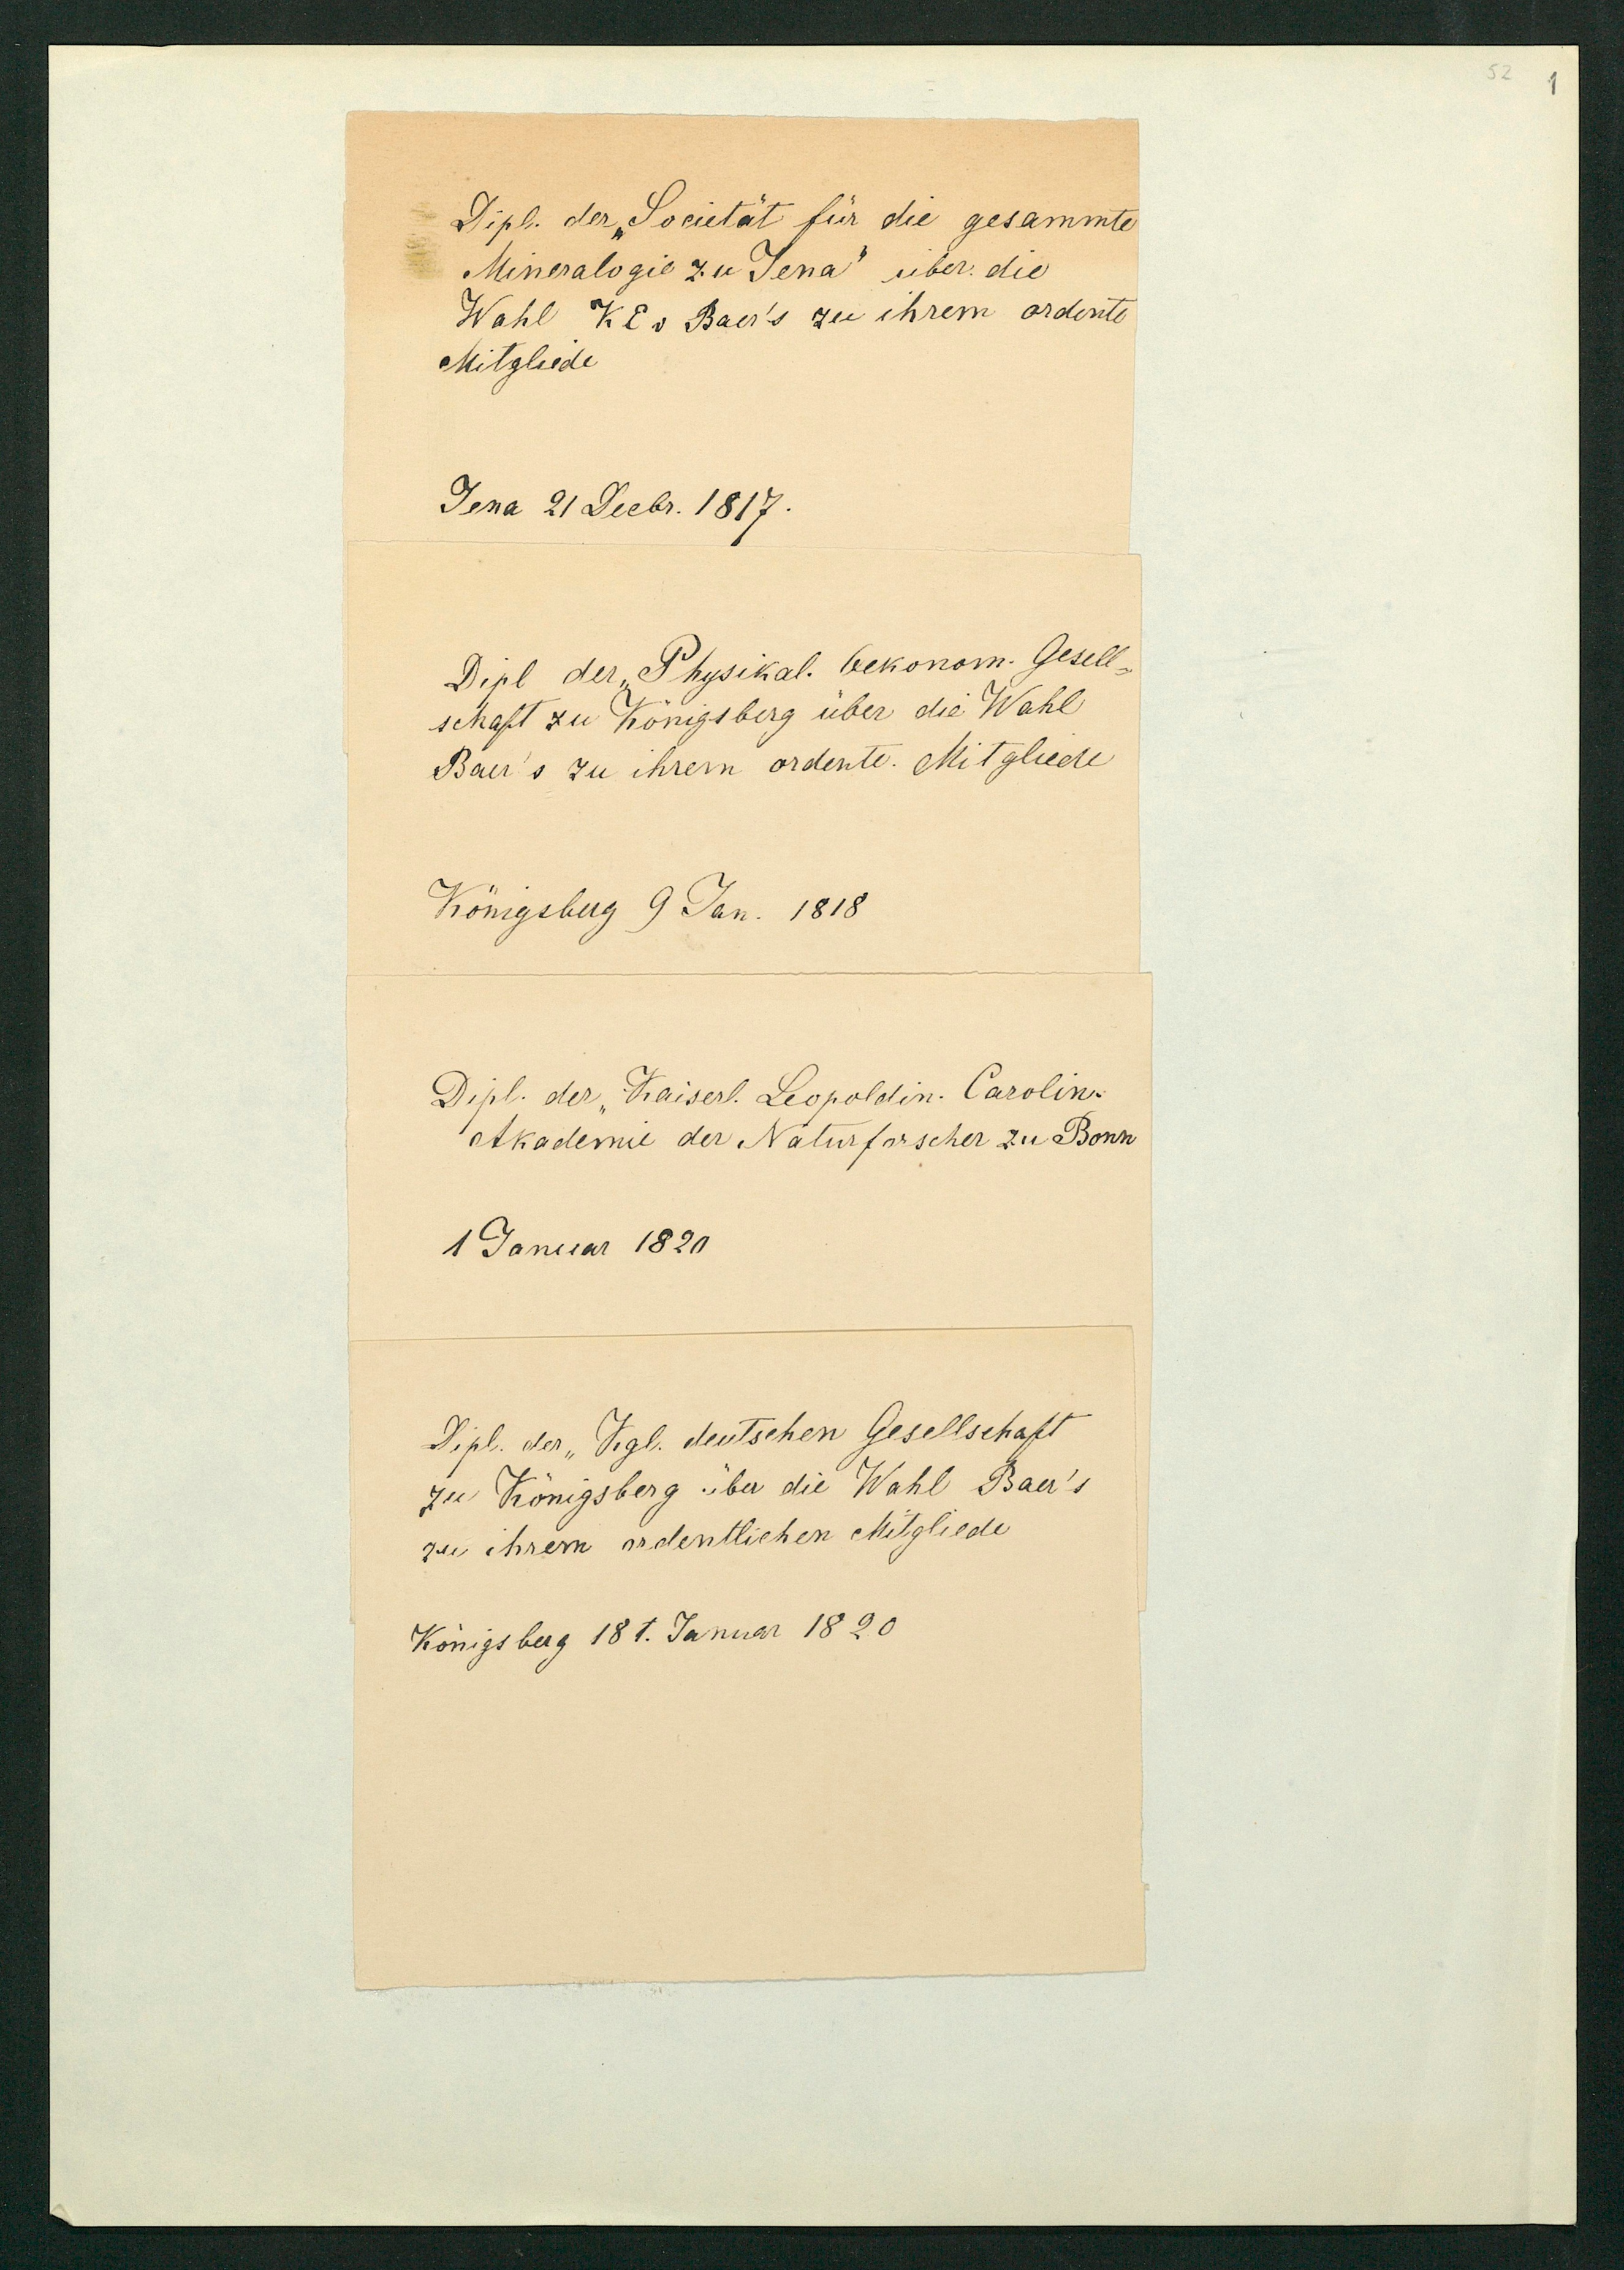 52 1
Dipl. der „Societät für die gesammte
Mineralogie zu Jena" über die
Wahl K E v Baer's zu ihrem ordentl
Mitgliede
Jena 21 Decbr. 1817.
Dipl der „Physikal. oekonom. Gesell-
schaft zu Königsberg über die Wahl
Baer's zu ihrem ordentl. Mitgliede
Königsberg 9 Jan. 1818
Dipl. der „Kaiserl. Leopoldin. Carolin.
Akademie der Naturforscher zu Bonn
1 Januar 1820
Dipl. der „Kgl. deutschen Gesellschaft
zu Königsberg über die Wahl Baer's
zu ihrem ordentlichen Mitgliede
Königsberg 18 t. Januar 1820